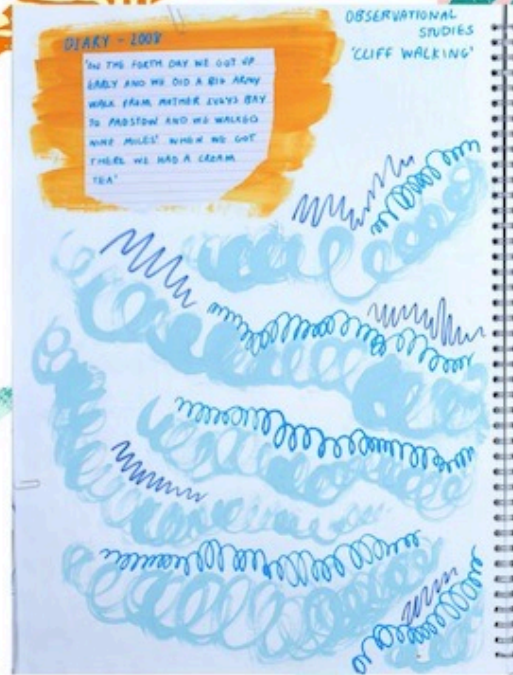 DIARY - 2008
'ON THE FORTH DAY WE GOT UP
EARLY AND WE DID A BIG ARMY
WALK FROM MOTHER IVEYS BAY
TO PADSTOW AND WE WALKED
NINE MILES' WHEN WE GOT
THERE WE HAD A CREAM
TEA'
OBSERVATIONAL
STUDIES
'CLIFF WALKING'